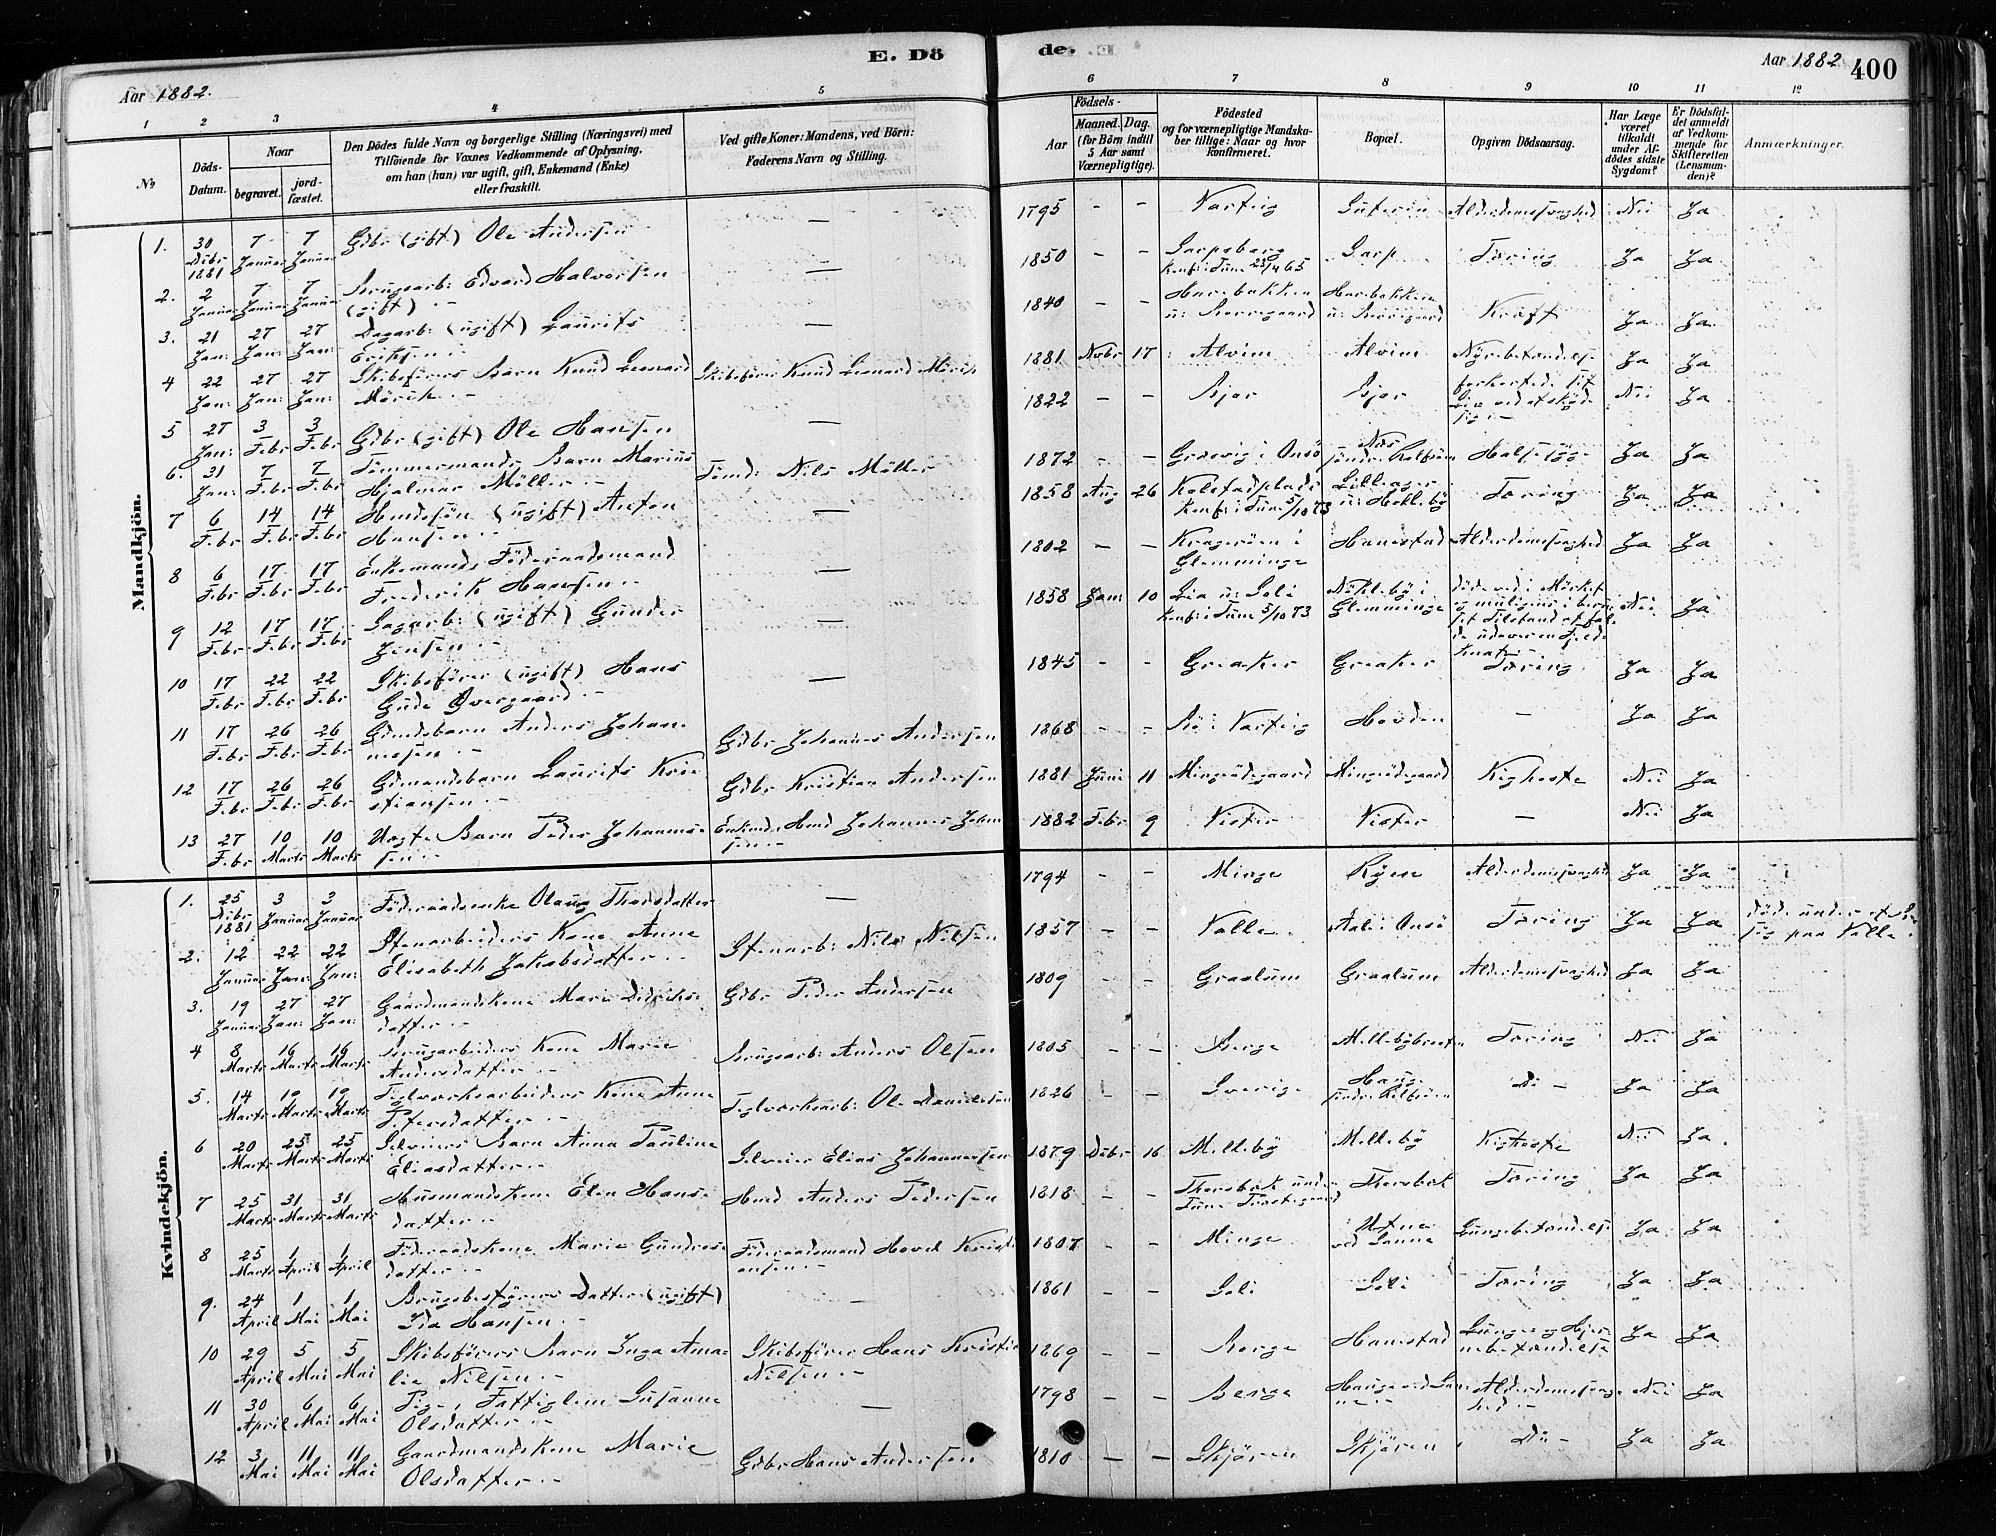 E. Dö
de.
Aar 1882.
Aar 1882
400
1 2 3 4 5
6 7 8 9 10 11 12
№
Döds-Datum.
Naar
begravet.
jord-fæstet.
Den Dödes fulde Navn og borgerlige Stilling (Næringsvei) med
Tilföiende for Voxnes Vedkommende af Oplysning,
om han (hun) var ugift, gift, Enkemand (Enke)
eller fraskilt.
Ved gifte Koner: Mandens, ved Börn:
Faderens Navn og Stilling.
Födsels-
Aar
Maaned. Dag.
(for Börn indtil
5 Aar samt
Værnepligtige).
Födested
og for værnepligtige Mandska-
ber tillige: Naar og hvor
konfirmeret.
Bopæl.
Opgiven Dödsaarsag.
Har Læge
været
tilkaldt
under Af-
dödes sidste
Sygdom?
Er Dödsfal-
det anmeldt
af Vedkom-
mende for
Skifteretten
(Lensman-
den)?
Anmærkninger.
Mandkjön.
1. 30 Dcbr 1881 7 Januar 7 Januar Gdbr (gift) Ole Andersen — 1795 - - Varteig Alderdomssvaghed Nei Ja
2. 2 Januar 7 Januar 7 Januar Brugsarb: Edvard Halvorsen (gift) — 1850 - - Sarpsborg Konf: i Tune 23/4 65 Sarp Tæring Ja Ja
3. 21 Jan: 27 Jan: 27 Jan: Dagarb: (ugift) Laurits Eriksen — 1840 - - Harebakken u: Borregaard Harebakken u: Borregaard Kræft Ja Ja
4 22 Jan: 27 Jan: 27 Jan: Skibsförers Barn Knud Leonard Mörch Skibsförer Knud Leonard Mörch 1881 Nvbr 17 Alvim Alvim Nyrebetændelse Ja Ja
5 27 Jan: 3 Febr 3 Febr Gdbr (gift) Ole Hansen — 1822 - - Bjor Bjor Nei Ja
6. 31 Jan: 7 Febr 7 Febr Tömmermands Barn Marius Hjalmar Möller Tömd: Nils Möller 1872 - - Græsvig i Onsö Næs under Kalfsön Halssyge Ja Ja
7 6 Febr 14 Febr 14 Febr Husmdssön (ugift) Anton Hansen — 1858 Aug 26 Kolstadplads Konf: i Tune 5/10 73 Tæring Ja Ja
8 6 Febr 17 Febr 17 Febr Enkemand Föderaadsmand Frederik Hansen — 1802 - - Kragerøen i Glemminge Hanestad Alderdomssvaghed Ja Ja
9 12 Febr 17 Febr 17 Febr Dagarb: (ugift) Gunder Jensen — 1858 Jan: 10 Lia u: Soli Konf: i Tune 5/10 73 Nökleby i Glemminge döde ved i Mörket Nei Ja
10 17 Febr 22 Febr 22 Febr Skibsförer (ugift) Hans Gude Overgaard — 1845 - - Greaker Greaker Tæring Ja Ja
11 17 Febr 26 Febr 26 Febr Gdmdsbarn Anders Johannessen Gdbr Johannes Andersen 1868 - - Bö i Varteig Hovden — Ja Ja
12 17 Febr 26 Febr 26 Febr Gdmandsbarn Laurits Kristiansen Gdbr Kristian Andersen 1881 Juni 11 Mingeödegaard Mingeödegaard Kighoste Nei Ja
13 27 Febr 10 Marts 10 Marts Uægte Barn Peder Johannessen 1882 Febr 9 Vister Vister — Nei Ja
Kvindekjön.
1. 25 Dcbr 1881 3 Januar 3 Januar Föderaadsenke Olaug Thordsdatter — 1794 - - Minge Ryen Alderdomssvaghed Ja Ja
2. 12 Januar 22 Jan: 22 Jan: Stenarbeiders Kone Anne Elisabeth Jakobsdatter Stenarb: Nils Nilsen 1857 - - Valle Aale i Onsö Tæring Ja Ja döde under et paa Valle
3. 19 Januar 27 Jan: 27 Jan: Gaardmandskone Marie Didriksdatter Gdbr Peder Andersen 1809 - - Graalum Graalum Alderdomssvaghed Ja Ja
4 8 Marts 16 Marts 16 Marts Brugsarbeiders Kone Marie Andersdatter Brugsarb: Anders Olsen 1805 - - Berge Tæring Nei Ja
5. 14 Marts 19 Marts 19 Marts Teglværksarbeiders Kone Anne Petersdatter Teglværksarb: Ole Danielsen 1826 - - Sverige Do - Ja Ja
6 20 Marts 25 Marts 25 Marts Selveiers Barn Anna Pauline Eliasdatter Selveier Elias Johannessen 1879 Dcbr 16 Melleby Melleby Kighoste Nei Ja
7 25 Marts 31 Marts 31 Marts Husmandskone Elen Hansdatter Hmd Anders Pedersen 1818 - - Thorsbæk under Tune Præstegaard Thorsbæk Tæring Ja Ja
8 25 Marts 1 April 1 April Föderaadskone Marie Gundersdatter Föderaadsmand Hovel Kristiansen 1807 - - Minge Utne ved Sanne Lungebetændelse Ja Ja
9. 24 April 1 Mai 1 Mai Brugsbestyrers Datter (ugift) Ida Hansen — 1861 - - Soli Soli Tæring Ja Ja
10 29 April 5 Mai 5 Mai Skibsförers Barn Inga Amalie Nilsen Skibsförer Hans Kristian Nilsen 1869 - - Borge Hanestad Lunge og Hjernebetændelse Ja Ja
11 30 April 6 Mai 6 Mai Pige, Fattiglem Susanne Olsdatter — 1798 - - Berge Alderdomssvaghed Nei Ja
12 3 Mai 11 Mai 11 Mai Gaardmandskone Marie Olsdatter Gdbr Hans Andersen 1810 - - Skjören Skjören Do - Ja Ja